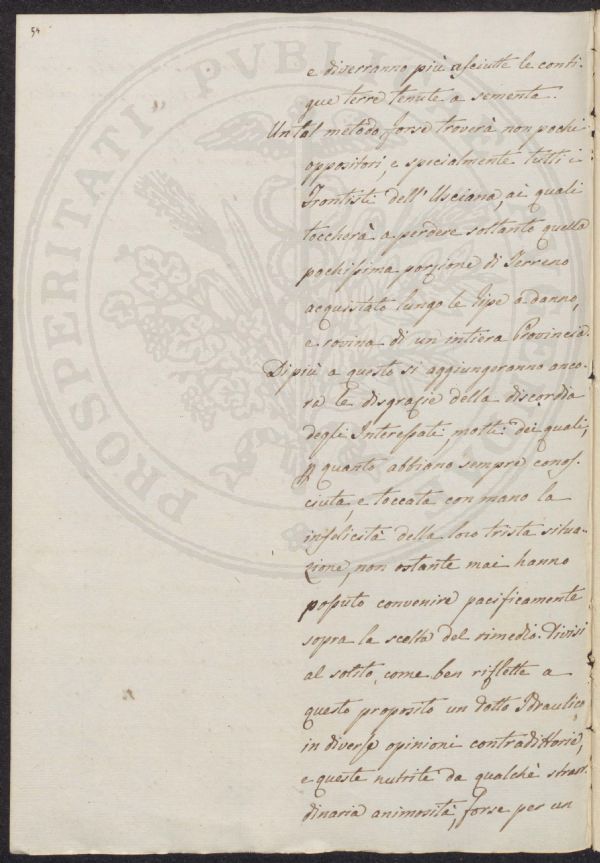 54
PROSPERITATI PUBLICAE
e diverranno più asciutte le conti-
gue terre tenute a sementa.
Un tal metodo forse troverà non pochi
oppositori, e specialmente tutti i
Frontisti dell'Usciana, ai quali
toccherà a perdere soltanto quella
pochissima porzione di Terreno
acquistato lungo le ripe a danno,
e rovina di un intiera Provincia.
Di più a questo si aggiungeranno anco-
ra le disgrazie della discordia
degli Interessati, molti dei quali,
p quanto abbiano sempre conos-
ciuta, e toccata con mano la
infelicità della loro trista situa-
zione, non ostante mai hanno
potuto convenire pacificamente
sopra la scelta del rimedio. Divisi
al solito, come ben riflette a
questo proposito un dotto Idraulico,
in diverse opinioni contradittorie,
e queste nutrite da qualchè straor-
dinaria animosità, forse per un